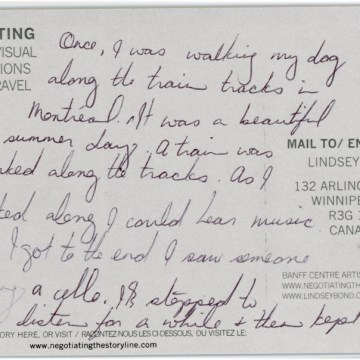 TING
VISUAL
IONS
RAVEL
Once, I was walking my dog
along the train tracks in
Montréal. It was a beautiful
summer day. A train was
along the tracks. As I
along I could hear music
I got to the end I saw someone
a cello. I stopped to
listen for a while & then kept
MAIL TO/ EN
LINDSEY
132 ARLIN
WINNIPE
R3G
CANA
BANFF CENTRE ARTIS
WWW.NEGOTIATINGTHE
WWW.LINDSEYBOND.C
ORY HERE, OR VISIT / RACONTEZ-NOUS LES CI-DESSOUS, OU VISITEZ LE:
www.negotiatingthestoryline.com